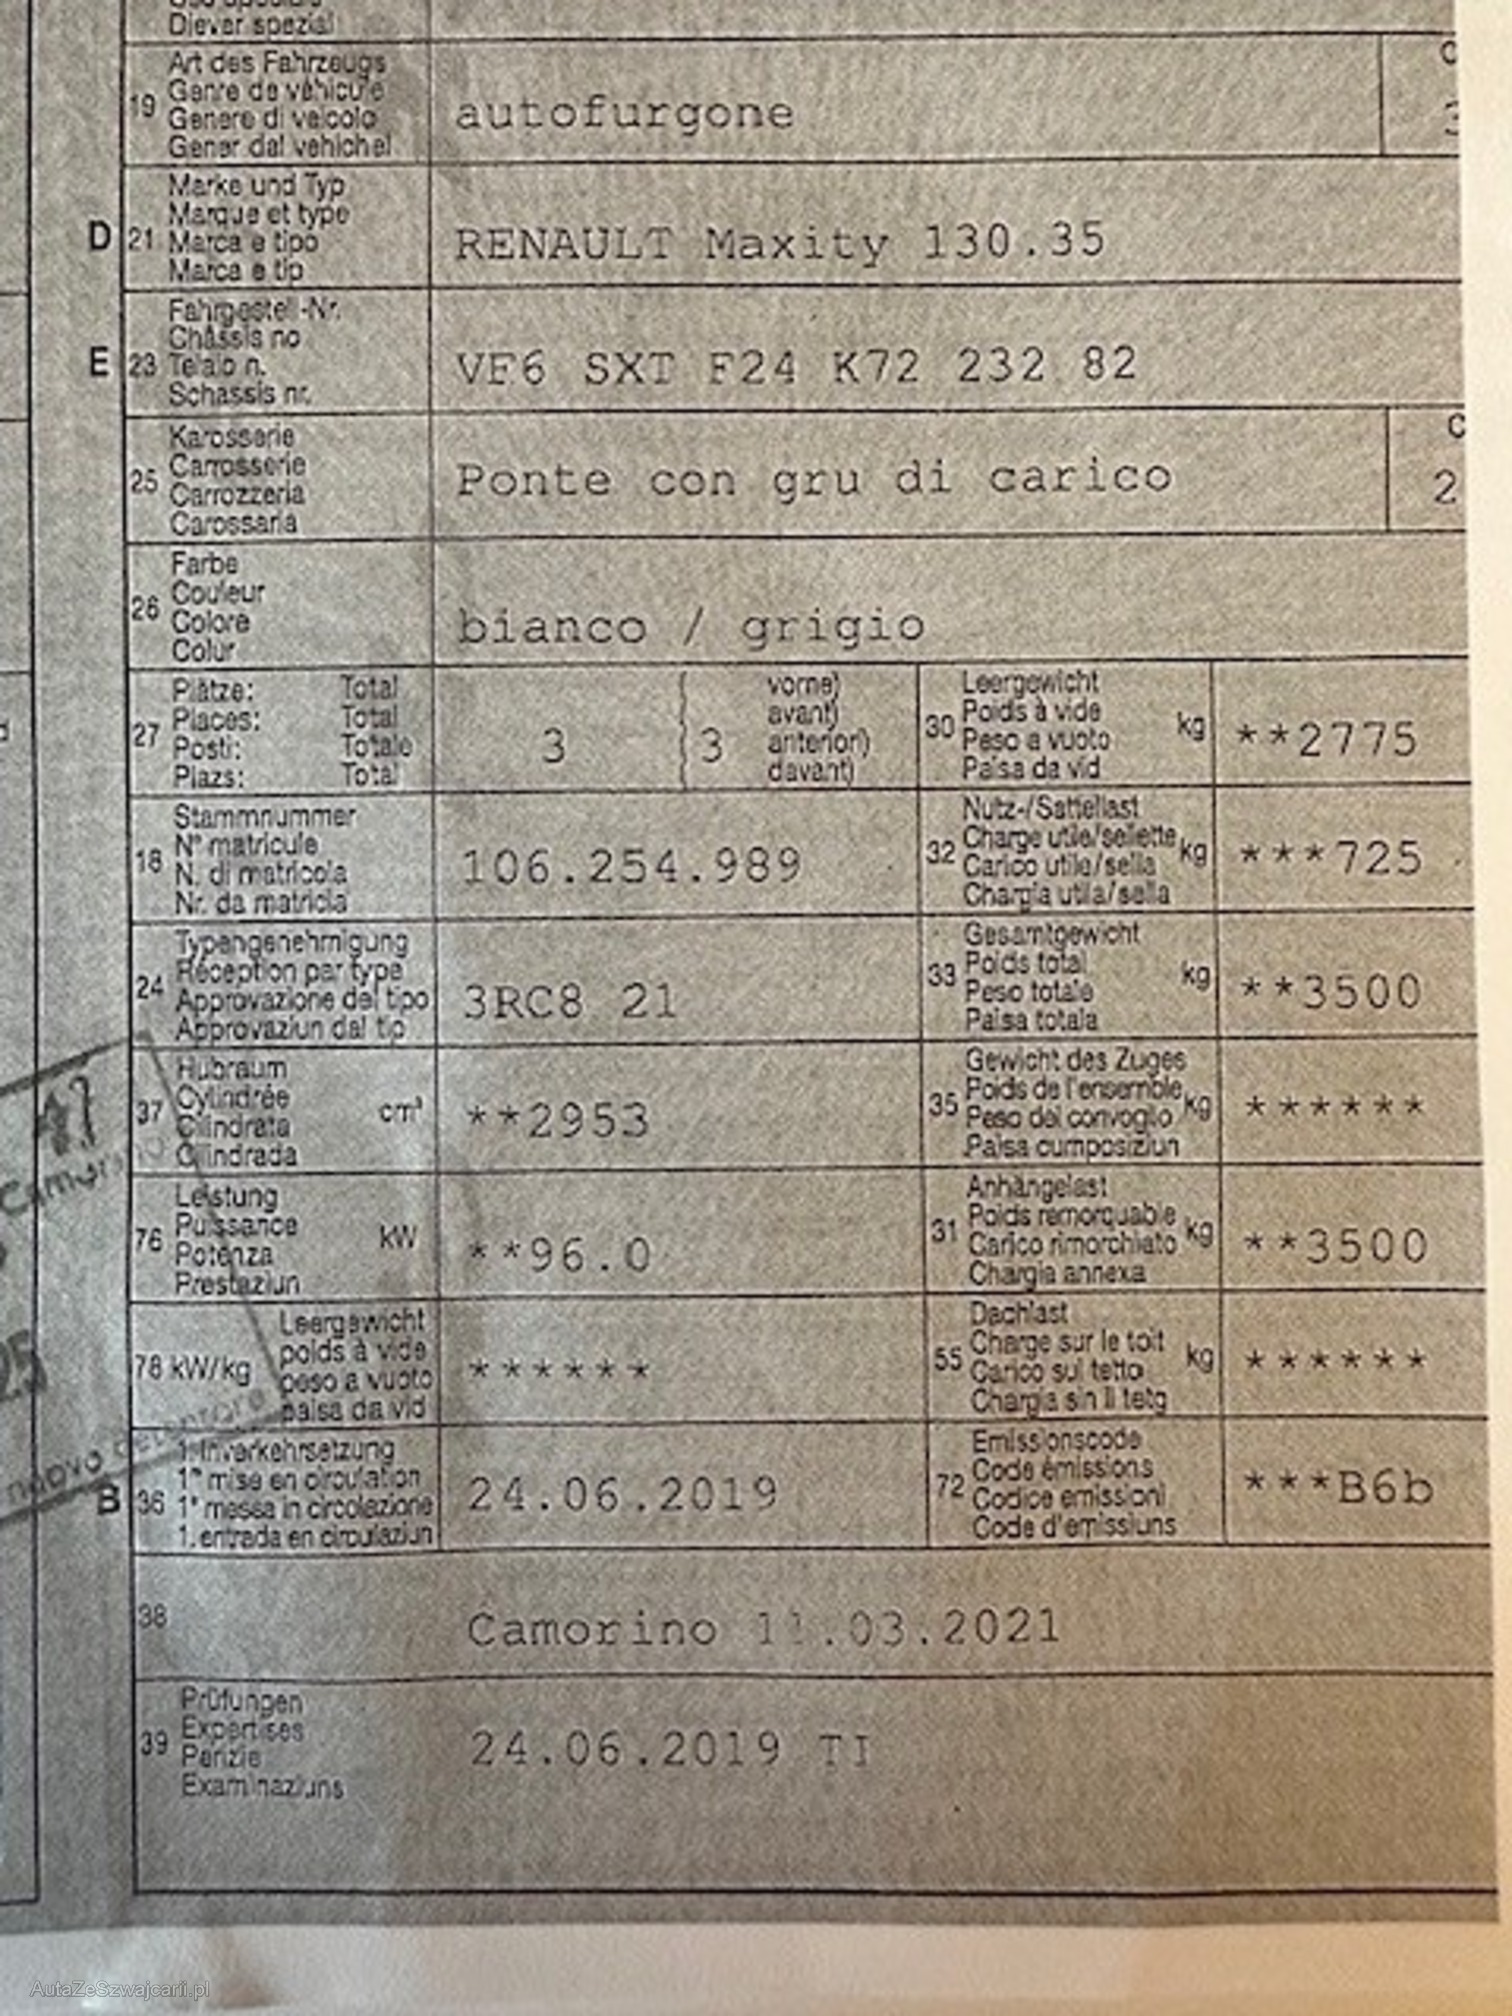 Diever spezial
Art des Fahrzeugs
Genre de véhicule
19
Genere di veicolo
Gener dal vehichel
autofurgone
C
3
Marke und Typ
Marque et type
D 21
Marca e tipo
Marca e tip
RENAULT Maxity 130.35
Fahrgestell-Nr.
Châssis no
E 23
Telaio n.
Schassis nr.
VF6 SXT F24 K72 232 82
Karosserie
Carrosserie
25
Carrozzeria
Carossaria
Ponte con gru di carico
C
2
Farbe
Couleur
26
Colore
Colur
bianco / grigio
27
Plätze: Total
Places: Total
Posti: Totale
Plazs: Total
3
3
vorne)
avant)
anteriori)
davant)
30
Leergewicht
Poids à vide
Peso a vuoto
Paisa da vid
kg
**2775
18
Stammnummer
N° matricule
N. di matricola
Nr. da matricla
106.254.989
32
Nutz-/Sattellast
Charge utile/sellette
Carico utile/sella
Chargia utila/sella
kg
***725
24
Typengenehmigung
Réception par type
Approvazione del tipo
Approvaziun dal tip
3RC8 21
33
Gesamtgewicht
Poids total
Peso totale
Paisa totala
kg
**3500
37
Hubraum
Cylindrée
Cilindrata
Cilindrada
cm³
**2953
35
Gewicht des Zuges
Poids de l'ensemble
Peso del convoglio
Paisa cumposiziun
kg
******
76
Leistung
Puissance
Potenza
Prestaziun
kW
**96.0
31
Anhängelast
Poids remorquable
Carico rimorchiato
Chargia annexa
kg
**3500
78 kW/kg
Leergewicht
poids à vide
peso a vuoto
paisa da vid
******
55
Dachlast
Charge sur le toit
Carico sul tetto
Chargia sin il tetg
kg
******
B 36
1. Inverkehrsetzung
1re mise en circulation
1a messa in circolazione
1. entrada en circulaziun
24.06.2019
72
Emissionscode
Code émissions
Codice emissioni
Code d'emissiuns
***B6b
38
Camorino 11.03.2021
39
Prüfungen
Expertises
Perizie
Examinaziuns
24.06.2019 TI
Camorino
25
nuovo detentore
AutaZeSzwajcarii.pl